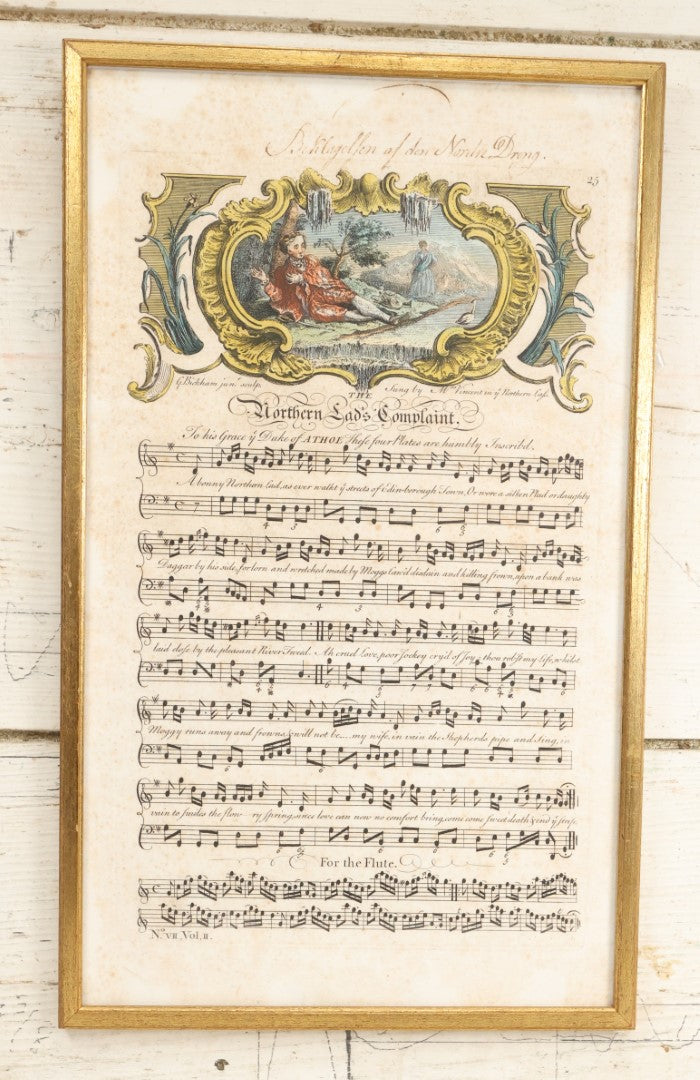 Beklagelsen af den Nordre Dreng.
25
G. Bickham junr. sculp.
Sung by Mr. Vincent in ye Northern Lass.
THE
Northern Lad's Complaint.
To his Grace ye Duke of ATHOL These four Plates are humbly Inscrib'd.
A bonny Northern Lad, as ever walkt ye streets of Edenborough Town, Or wore a silken Plad or doughty
4 3
Daggar by his side, forlorn and wretched made by Moggs Caus'd disdain and killing frown, upon a bank was
laid close by the pleasant River Tweed. Ah cruel Love, poor Jockey cry'd of Joy thou rob'st my Life, whilst
Moggy runs away and frowns & will not be my wife, in vain the Shepherds pipe and Sing, in
vain to smiles the flow ry spring, since love can now no comfort bring, come come sweet death & end ye strife.
For the Flute.
No. VII. Vol. II.